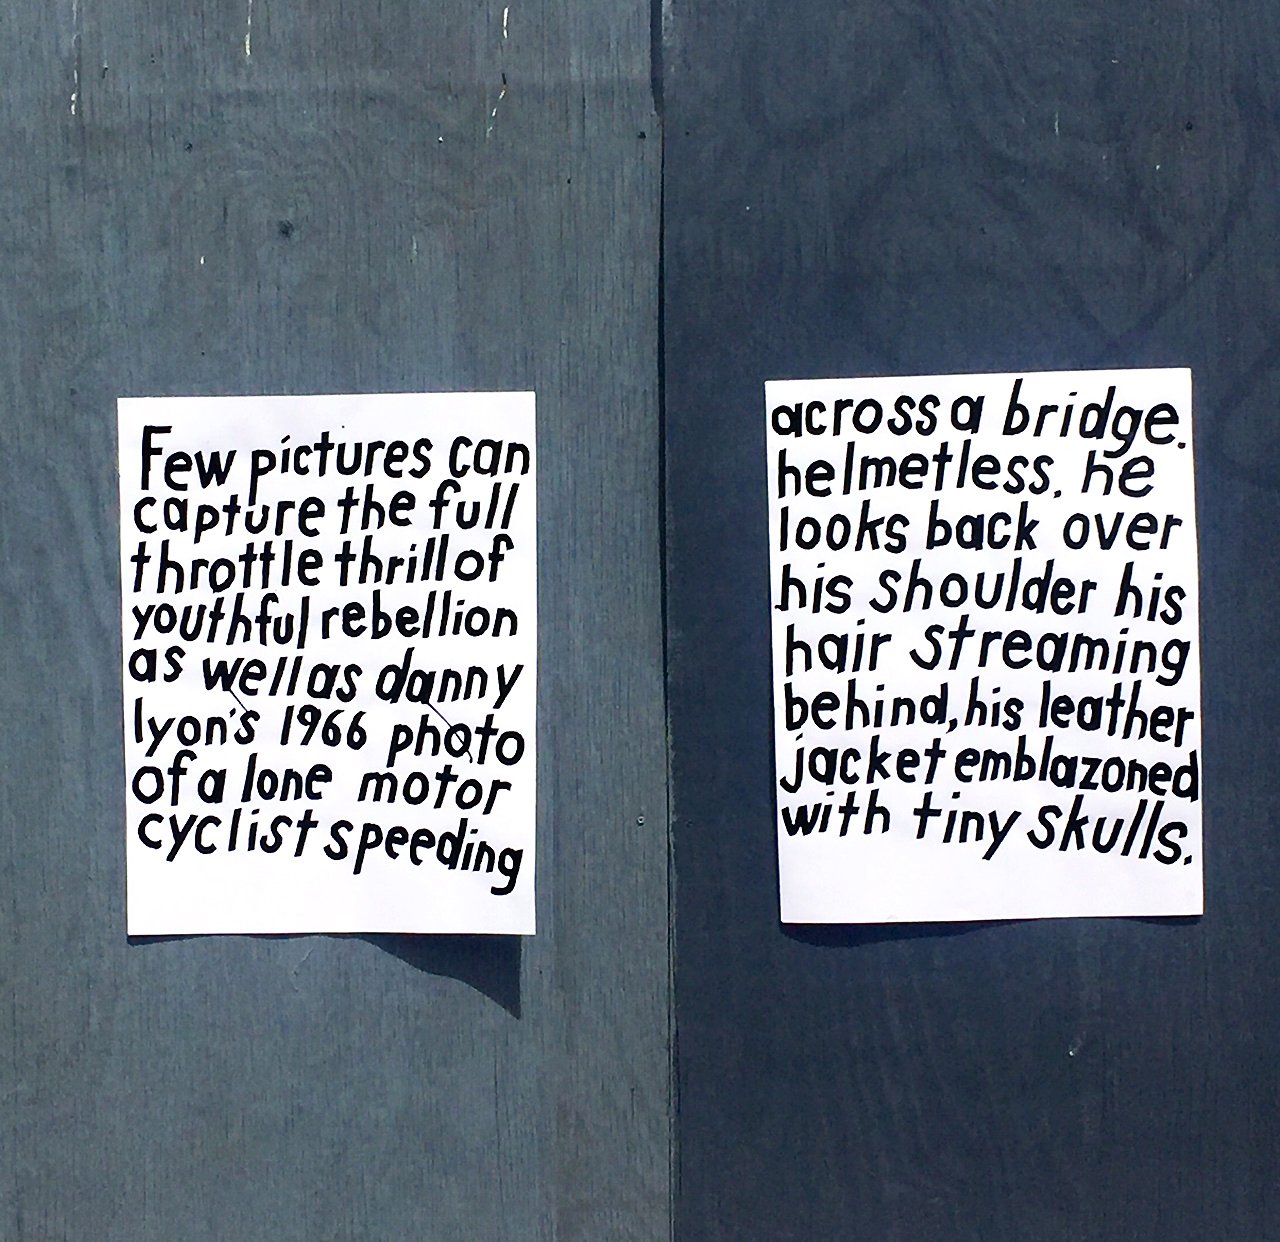 Few pictures can
capture the full
throttle thrill of
youthful rebellion
as well as danny
lyon's 1966 photo
of a lone motor
cyclist speeding
across a bridge.
helmetless, he
looks back over
his shoulder his
hair streaming
behind, his leather
jacket emblazoned
with tiny skulls.